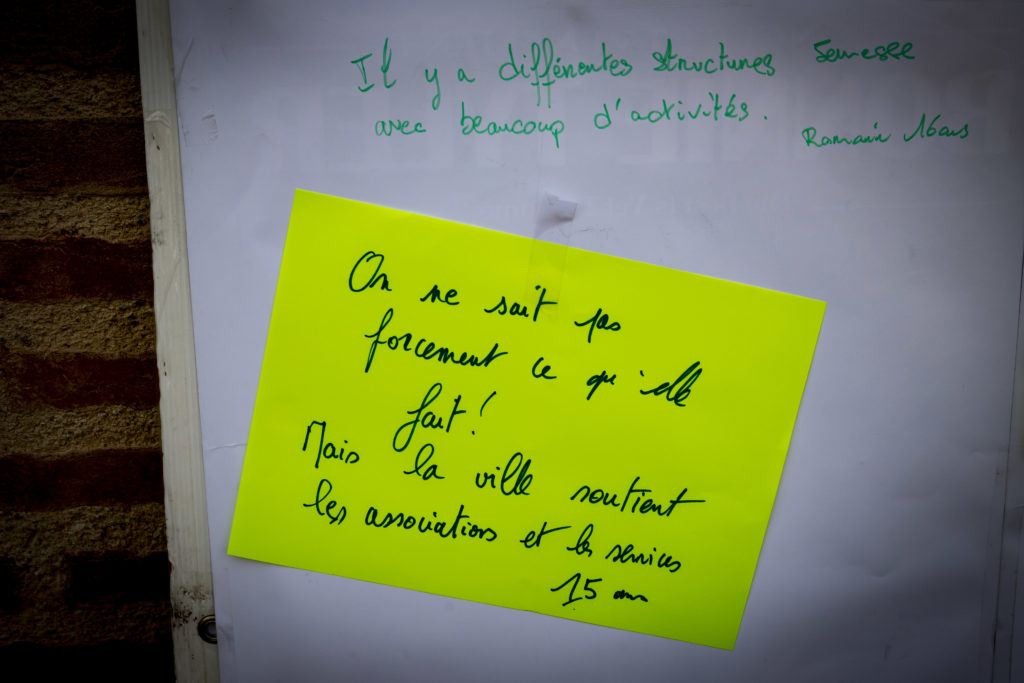 Il y a différentes structures Jeunesse
avec beaucoup d'activités.
Romain 16 ans
On ne sait pas
forcement ce qu'elle
fait!
Mais la ville soutient
les associations et les services
15 ans